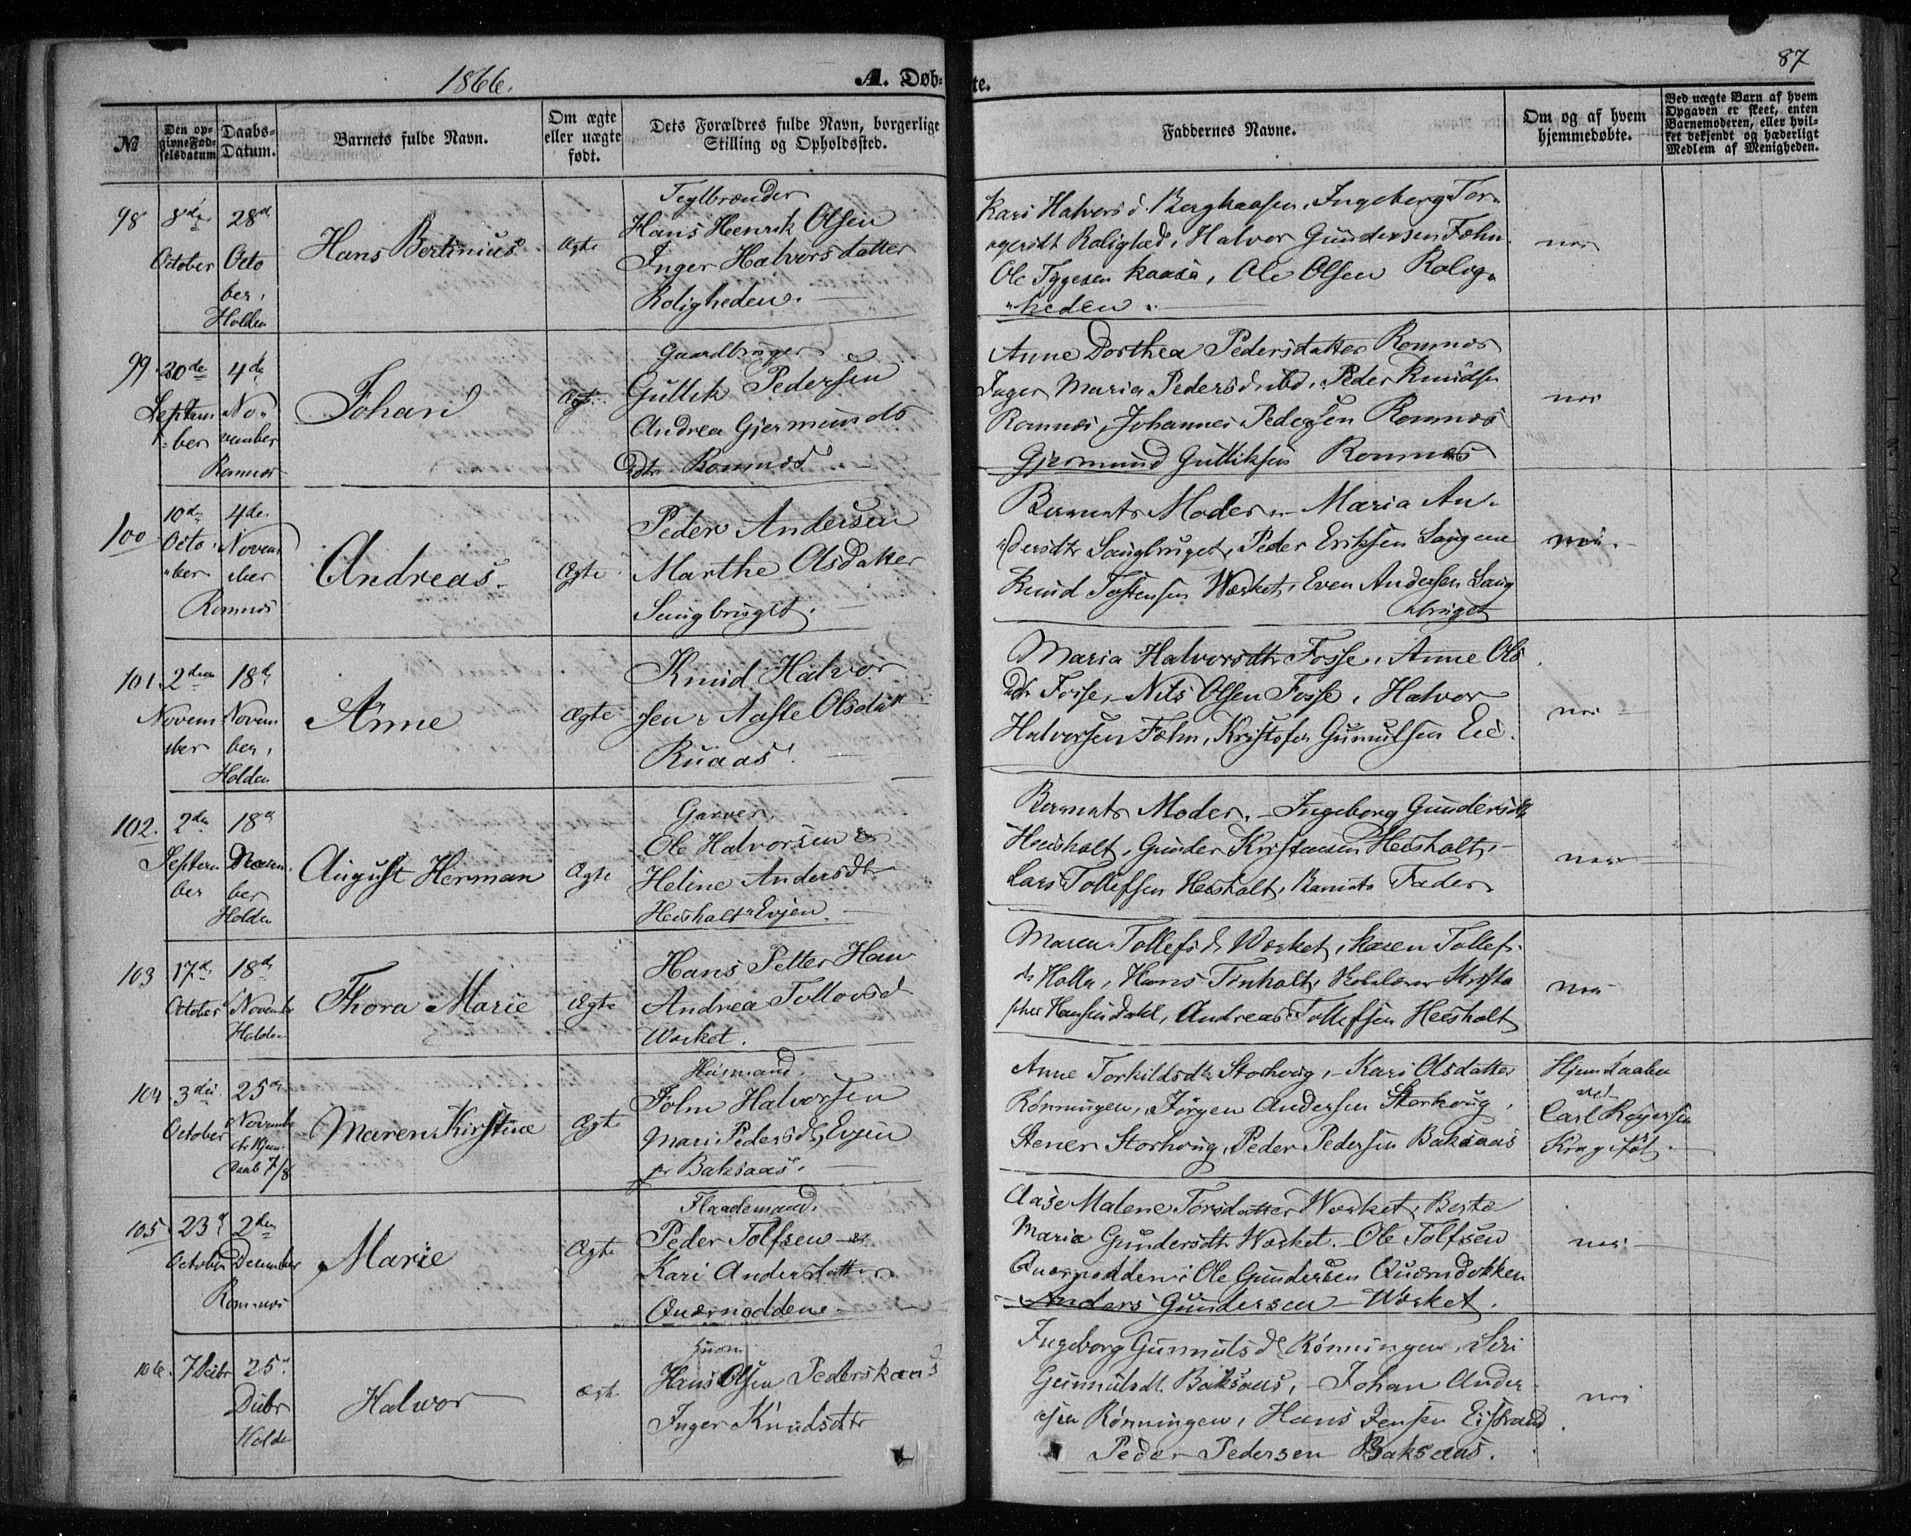 1866.
A. Døb-
te.
87
No
Den op-
givne Fød-
selsdatum
Daabs-
Datum.
Barnets fulde Navn.
Om ægte
eller uægte
født.
Dets Forældres fulde Navn, borgerlige
Stilling og Opholdssted.
Faddernes Navne.
Om og af hvem
hjemmedøbte.
Ved uægte Barn af hvem
Opgaven er skeet, enten
Barnemoderen, eller hvil-
ket bekjendt og hæderligt
Medlem af Menigheden.
98
8de
October
28d
Octo
ber,
Holden
Hans Bertinius
Ægte
Teglbrænder
Hans Henrik Olsen
Inger Halvorsdatter
Roligheden.
Kari Halvorsd. Berghaasen, Ingeborg Tor-
Rolighed, Halvor Gundersen Fæhn.
Ole Tygesen Kaasa, Ole Olsen Rolig-
heden.
nei
99
20de
Septem
ber
4de
No-
vember
Romnes
Johan
Ægte
Gaardbruger
Gullik Pedersen
Andrea Gjermunds
dtr Romnes
Anne Dorthea Pedersdatter Romnes
Inger Maria Pedersd. ibd, Peder Knudsen
Romnes, Johannes Pedersen Romnes
Gjermund Gulliksen Romnes
nei
100
10de
Octo
ber
4de
Novem
ber
Romnes
Andreas
Ægte
Peder Andersen
Marthe Olsdatter
Saugbruget.
Barnets Moder, - Maria An-
dersdtr Saugbruget, Peder Eriksen Saugene
Knud Tostensen Værket, Even Andersen Saug
bruget
nei.
101.
2den
Novem
ber
18de
Novem
ber,
Holden
Anne
Ægte
Knud Halvor
sen & Aaste Olsdatt
Ruaas.
Maria Halvorsdtr Fosse, Anne Ols
dtr Fosse, Nils Olsen Fosse, Halvor
Halvorsen Fæhn, Kristofer Gunnulsen Eie.
nei
102.
2den
Septem
ber
18de
Novem
ber
Holden
August Herman
Ægte
Garver,
Ole Halvorsen &
Heline Andersdtr
Heisholt Evjen.
Barnets Moder, Ingeborg Gundersdtr
Heisholt, Gunder Kristensen Heisholt,
Lars Tollefsen Heisholt, Barnets Fader
nei
103
17de
October
18de
Novembr
Holden
Thora Marie
Ægte
Hans Petter Han
Andrea Tollevsd
Værket.
Maren Tollefsd Værket, Karen Tollefs-
dr Holla, Hans Tinholt, Kristo
pher Hansen Dahl, Andreas Tollefsen Heisholt
nei
104
3die
October
25de
Novembr
Hjem
daab 7/8
Maren Kirstine
Ægte
Huusmand.
John Halvorsen
Mari Pedersd, Evjen
pr Baksaas.
Anne Torkildsdtr Storhoug, - Kari Olsdatter
Rønningen, Jørgen Andersen Storhoug,
Stener Storhoug, Peder Pedersen Baksaas
Hjemdaaben
ved
Carl Røyersen
105
23d
October
2den
December
Romnes
Marie
Ægte
Flaademand.
Peder Tolfsen &
Kari Andersdatter
Quærnoddene
Aase Malene Torsdatter Værket, Berte
Maria Gundersdtr Værket. - Ole Tolfsen
Quærnodden, Ole Gundersen Quærndokken
Anders Gundersen - Værket.
nei
106.
7
25d
Decbr
Holde
Halvor
Ægt.
Hans Olsen Pederskaas
Inger Knudsdtr
Ingeborg Gunnulsd. Rønningen, Siri
Gunnulsdt. Baksaas, - Johan Ander
sen Rønningen, Hans Jensen Eistrand
Peder Pedersen Baksaas.
nei